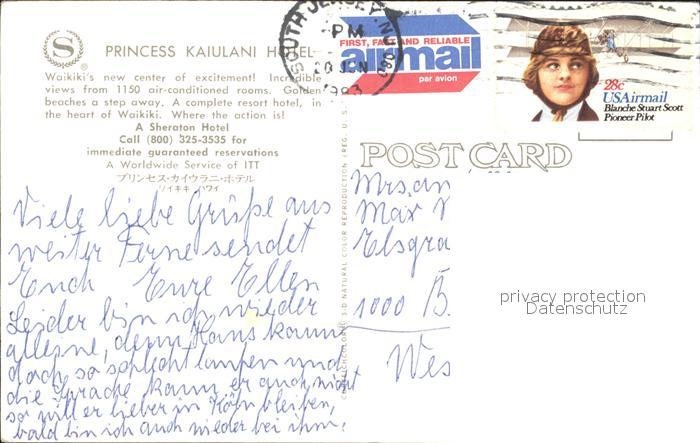 S
PRINCESS KAIULANI HOTEL
Waikiki's new center of excitement! Incredible
views from 1150 air-conditioned rooms. Golden
beaches a step away. A complete resort hotel, in
the heart of Waikiki. Where the action is!
A Sheraton Hotel
Call (800) 325-3535 for
immediate guaranteed reservations
A Worldwide Service of ITT
プリンセス・カイウラニ・ホテル
ワイキキ ハワイ
SOUTH JERSEY, NJ
PM
20 JUN
1983
080
FIRST, FAST AND RELIABLE
airmail
par avion
28c
USAirmail
Blanche Stuart Scott
Pioneer Pilot
POST CARD
3-D NATURAL COLOR REPRODUCTION (REG. U.S.
Viele liebe Grüße aus
weiter Ferne sendet
Euch Eure Ellen
Leider bin ich wieder
alleine, denn Hans kann
doch so schlecht laufen und
die Sprache kann er auch nicht
so will er lieber in Köln bleiben,
bald bin ich auch wieder bei ihm.
Mrs. an
Max
Elsgra
1000 B.
Wes
privacy protection
Datenschutz